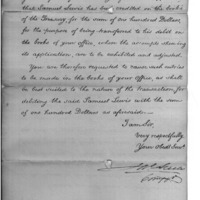 that Samuel Lewis has been credited on the books
of the Treasury for the sum of one hundred Dollars
for the purpose of being transferred to his debit on
the books of your office, where the accounts shewing
its application, are to be exhibited and adjusted.
You are therefore requested to cause such entries
to be made in the books of your office, as shall
be best suited to the nature of the transaction, for
debiting the said Samuel Lewis with the sum
of one hundred Dollars as aforesaid.
I am Sir,
Very respectfully
Your Obdt Servt.